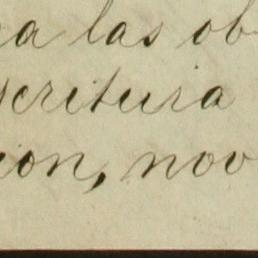 a las ob
scriteura
ion, nov